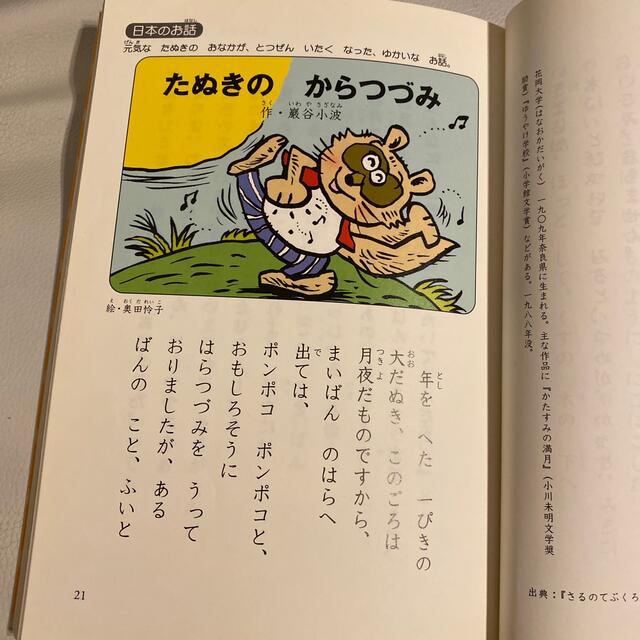 日本のお話
元気な たぬきの おなかが、とつぜん いたく なった、ゆかいな お話。
たぬきの からつづみ
作・巖谷小波
絵・奥田怜子
年を へた 一ぴきの
大だぬき、このごろは
月夜だものですから、
まいばん のはらへ
出ては、
ポンポコ ポンポコと、
おもしろそうに
はらつづみを うって
おりましたが、ある
ばんの こと、ふいと
21
花岡大学(はなおかだいがく) 一九〇九年奈良県に生まれる。主な作品に『かたすみの満月』(小川未明文学奨
励賞)『ゆうやけ学校』(小学館文学賞)などがある。一九八八年没。
出典:『さるのてぶくろ